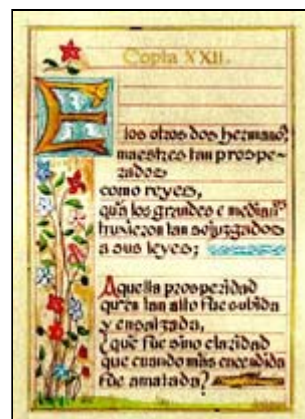 Copla XXII.
E los otros dos hermanos,
maestres tan prospe-
rados
como reyes,
qu'a los grandes e median
truxieron tan sojuzgados
a sus leyes;
Aquella prosperidad
qu'en tan alto fue subida
y ensalzada,
¿que fue sino claridad
que cuando más encendida
fue amatada?